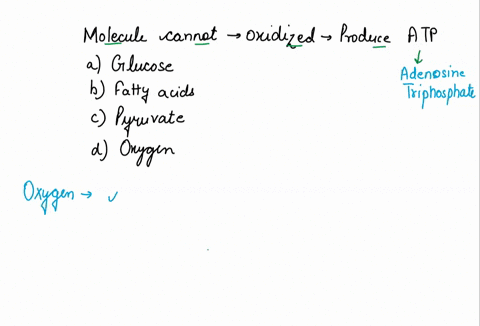 Molecule cannot → oxidized → Produce ATP
↓
Adenosine
Triphosphate
a) Glucose
b) Fatty acids
c) Pyruvate
d) Oxygen
Oxygen → ✓